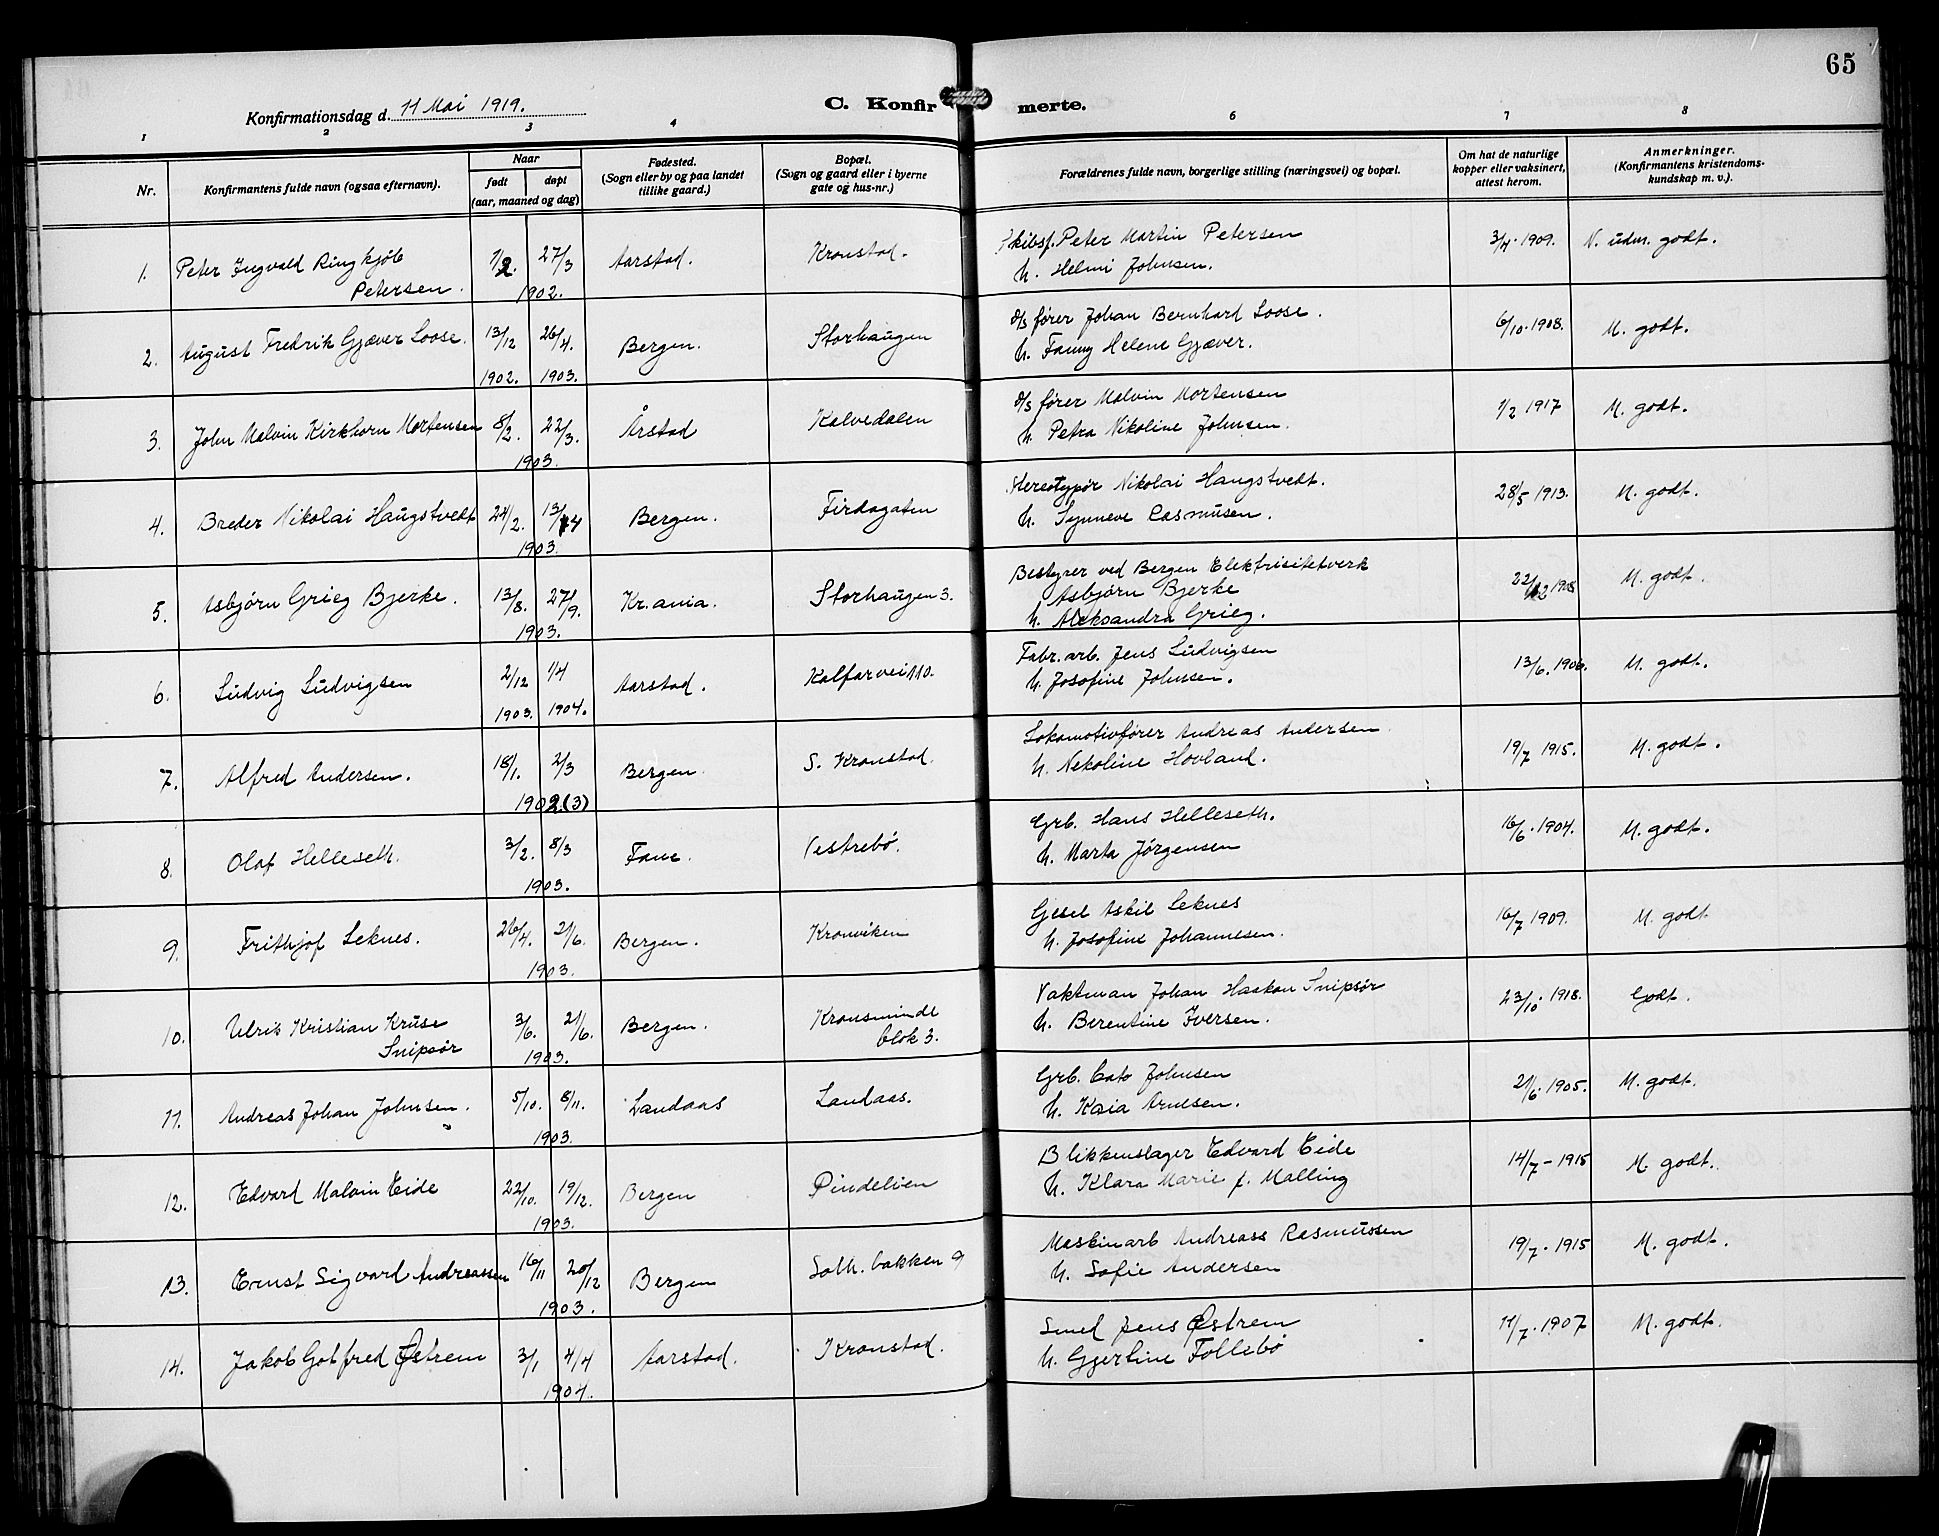 65
Konfirmationsdag d. 11 Mai 1919.
C. Konfirmerte.
1 2 3 4 6 7 8
Nr.
Konfirmantens fulde navn (ogsaa efternavn).
Naar
født
døpt
(aar, maaned og dag)
Fødested.
(Sogn eller by og paa landet
tillike gaard.)
Bopæl.
(Sogn og gaard eller i byerne
gate og hus-nr.)
Forældrenes fulde navn, borgerlige stilling (næringsvei) og bopæl.
Om hat de naturlige
kopper eller vaksinert,
attest herom.
Anmerkninger.
(Konfirmantens kristendoms-
kundskap m. v.).
1. Peter Ingvald Ringkjøb 1/2. 27/3 Aarstad. Kronstad. Skibsf. Peter Martin Petersen 3/4. 1909. N. udm. godt.
Petersen. 1902. h. Helmi Johnsen.
2. August Fredrik Gjæver Loose. 13/12 26/4. Bergen. Storhaugen d/s fører Johan Bernhard Loose. 6/10. 1908. M. godt.
1902. 1903. h. Fanny Helene Gjæver.
3. John Malvin Kirkhorn Mortensen 8/2. 22/3. Årstad Kalvedalen d/s fører Malvin Mortensen 1/2 1917 M. godt.
1903. h. Petra Nikoline Johnsen.
4. Breder Nikolai Haugstvedt 24/2. 13/4 Bergen. Firdagaten Stereotypør Nikolai Haugstvedt. 28/5 1913. M. godt.
1903. h. Synneve Rasmusen.
5. Asbjørn Grieg Bjerke. 13/8. 27/9. Kr.ania. Storhaugen 3. Bestyrer ved Bergen Elektrisitetverk 22/12 1908 M. godt.
1903. Asbjørn Bjerke
h. Aleksandra Grieg.
6. Ludvig Ludvigsen 2/12 1/4 Aarstad. Kalfarvei 110. Fabr. arb. Jens Ludvigsen 13/6. 1906. M. godt.
1903. 1904. h. Josefine Johnsen.
7. Alfred Andersen. 18/1. 2/3 Bergen. S. Kronstad. Lokomotivfører Andreas Andersen 19/7 1915. M. godt.
1902 (3) h. Nekoline Hovland.
8. Olaf Helleseth. 3/2. 8/3 Fane. Vestrebø. Grb. Hans Helleseth. 16/6. 1904. M. godt.
1903. h. Marta Jørgensen
9. Frithjof Leknes. 26/4. 2/6. Bergen. Kronviken Gjesel Askil Leknes 16/7 1909. M. godt.
1903. h. Josefine Johannesen.
10. Ulrik Kristian Kruse 3/6. 21/6. Bergen. Kronsminde Vaktman Johan Haakon Snipsør 23/10. 1918. Godt.
Snipsør 1903. blok 3. h. Berentine Iversen.
11. Andreas Johan Johnsen. 5/10. 8/11. Landaas Landaas. Grb. Cato Johnsen 21/6. 1905. M. godt.
1903. h. Kaia Arnesen.
12. Edvard Malvin Eide 22/10. 19/12. Bergen Pindelien Blikkenslager Edvard Eide 14/7 - 1915 M. godt.
1903. h. Klara Marie f. Malling
13. Ernst Sigvard Andreassen 16/11 20/12 Bergen Solh. bakken 9 Maskinarb Andreass Rasmussen 19/7. 1915 M. godt.
1903. h. Sofie Andersen
14. Jakob Gotfred Østrem 3/1 4/4 Aarstad. Kronstad. Smed Jens Østrem 11/7. 1907 M. godt.
1904. h. Gjertine Follebø